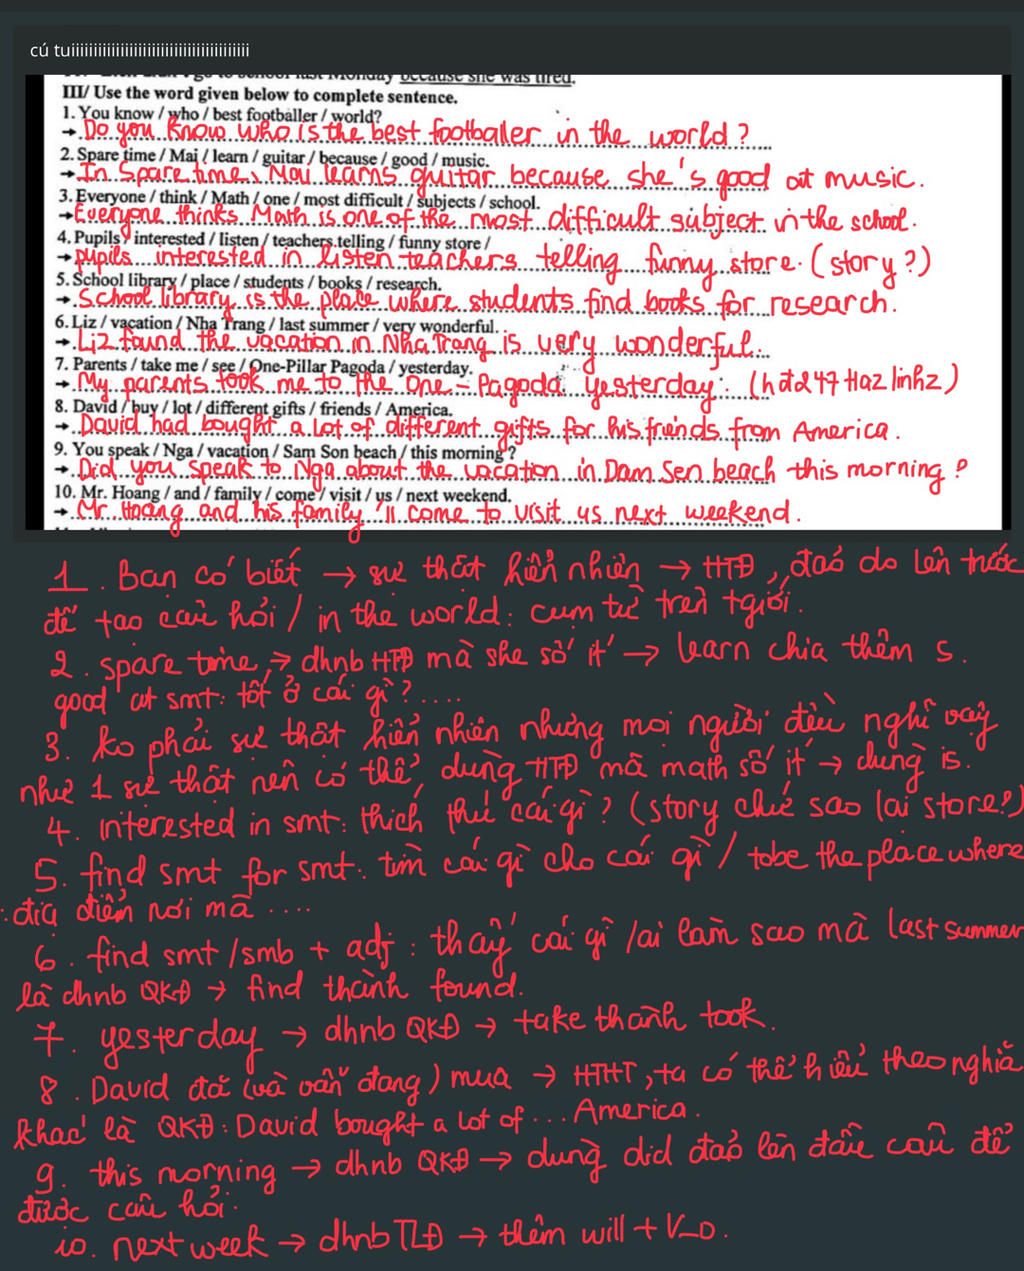 cú tuiiiiiiiiiiiiiiiiiiiiiiiiiiiiiiiiiiiiiiiii
go to school last Monday because she was tired.
III/ Use the word given below to complete sentence.
1. You know / who / best footballer / world?
→ Do you know who is the best footballer in the world?
2. Spare time / Mai / learn / guitar / because / good / music.
→ In spare time, Mai learns guitar because she's good at music.
3. Everyone / think / Math / one / most difficult / subjects / school.
→ Everyone thinks Math is one of the most difficult subject in the school.
4. Pupils / interested / listen / teachers telling / funny store /
→ pupils interested in listen teachers telling funny store. (story?)
5. School library / place / students / books / research.
→ School library is the place where students find books for research.
6. Liz / vacation / Nha Trang / last summer / very wonderful.
→ Liz found the vacation in Nha Trang is very wonderful.
7. Parents / take me / see / One-Pillar Pagoda / yesterday.
→ My parents took me to the One-Pagoda yesterday. (hđ247 Hazlinhz)
8. David / buy / lot / different gifts / friends / America.
→ David had bought a lot of different gifts for his friends from America.
9. You speak / Nga / vacation / Sam Son beach / this morning?
→ Did you speak to Nga about the vacation in Dam Sen beach this morning?
10. Mr. Hoang / and / family / come / visit / us / next weekend.
→ Mr. Hoang and his family 'll come to visit us next weekend.
1. Bạn có biết → sự thật hiển nhiên → HTĐ, đảo do lên trước
để tạo câu hỏi / in the world: cụm từ trên tgiới.
2. spare time, → dhnb HTĐ mà she số ít → learn chia thêm s.
good at smt: tốt ở cái gì?....
3. ko phải sự thật hiển nhiên nhưng mọi người đều nghĩ vậy
như 1 sự thật nên có thể dùng HTĐ mà math số ít → dùng is.
4. interested in smt: thích thú cái gì? (story chứ sao lại store?)
5. find smt for smt: tìm cái gì cho cái gì / tobe the place where
: địa điểm nơi mà ....
6. find smt /smb + adj : thấy cái gì /ai làm sao mà last summer
là dhnb QKĐ → find thành found.
7. yesterday → dhnb QKĐ → take thành took.
8. David đã (và vẫn đang) mua → HTHT, ta có thể hiểu theo nghĩa
khác là QKĐ: David bought a lot of ... America.
9. this morning → dhnb QKĐ → dùng did đảo lên đầu câu để
được câu hỏi.
10. next week → dhnb TLĐ → thêm will + V_O.